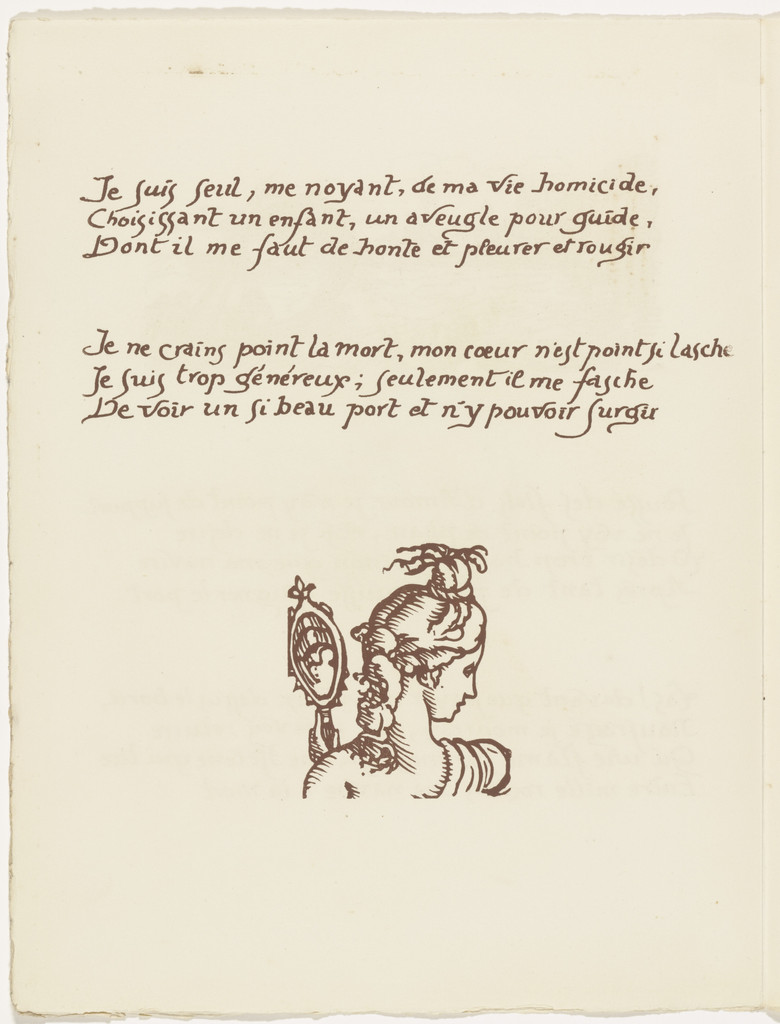 Je suis seul, me noyant, de ma vie homicide,
Choisissant un enfant, un aveugle pour guide,
Dont il me faut de honte et pleurer et rougir
Je ne crains point la mort, mon cœur n'est point si lasche
Je suis trop généreux; seulement il me fasche
De voir un si beau port et n'y pouvoir surgir